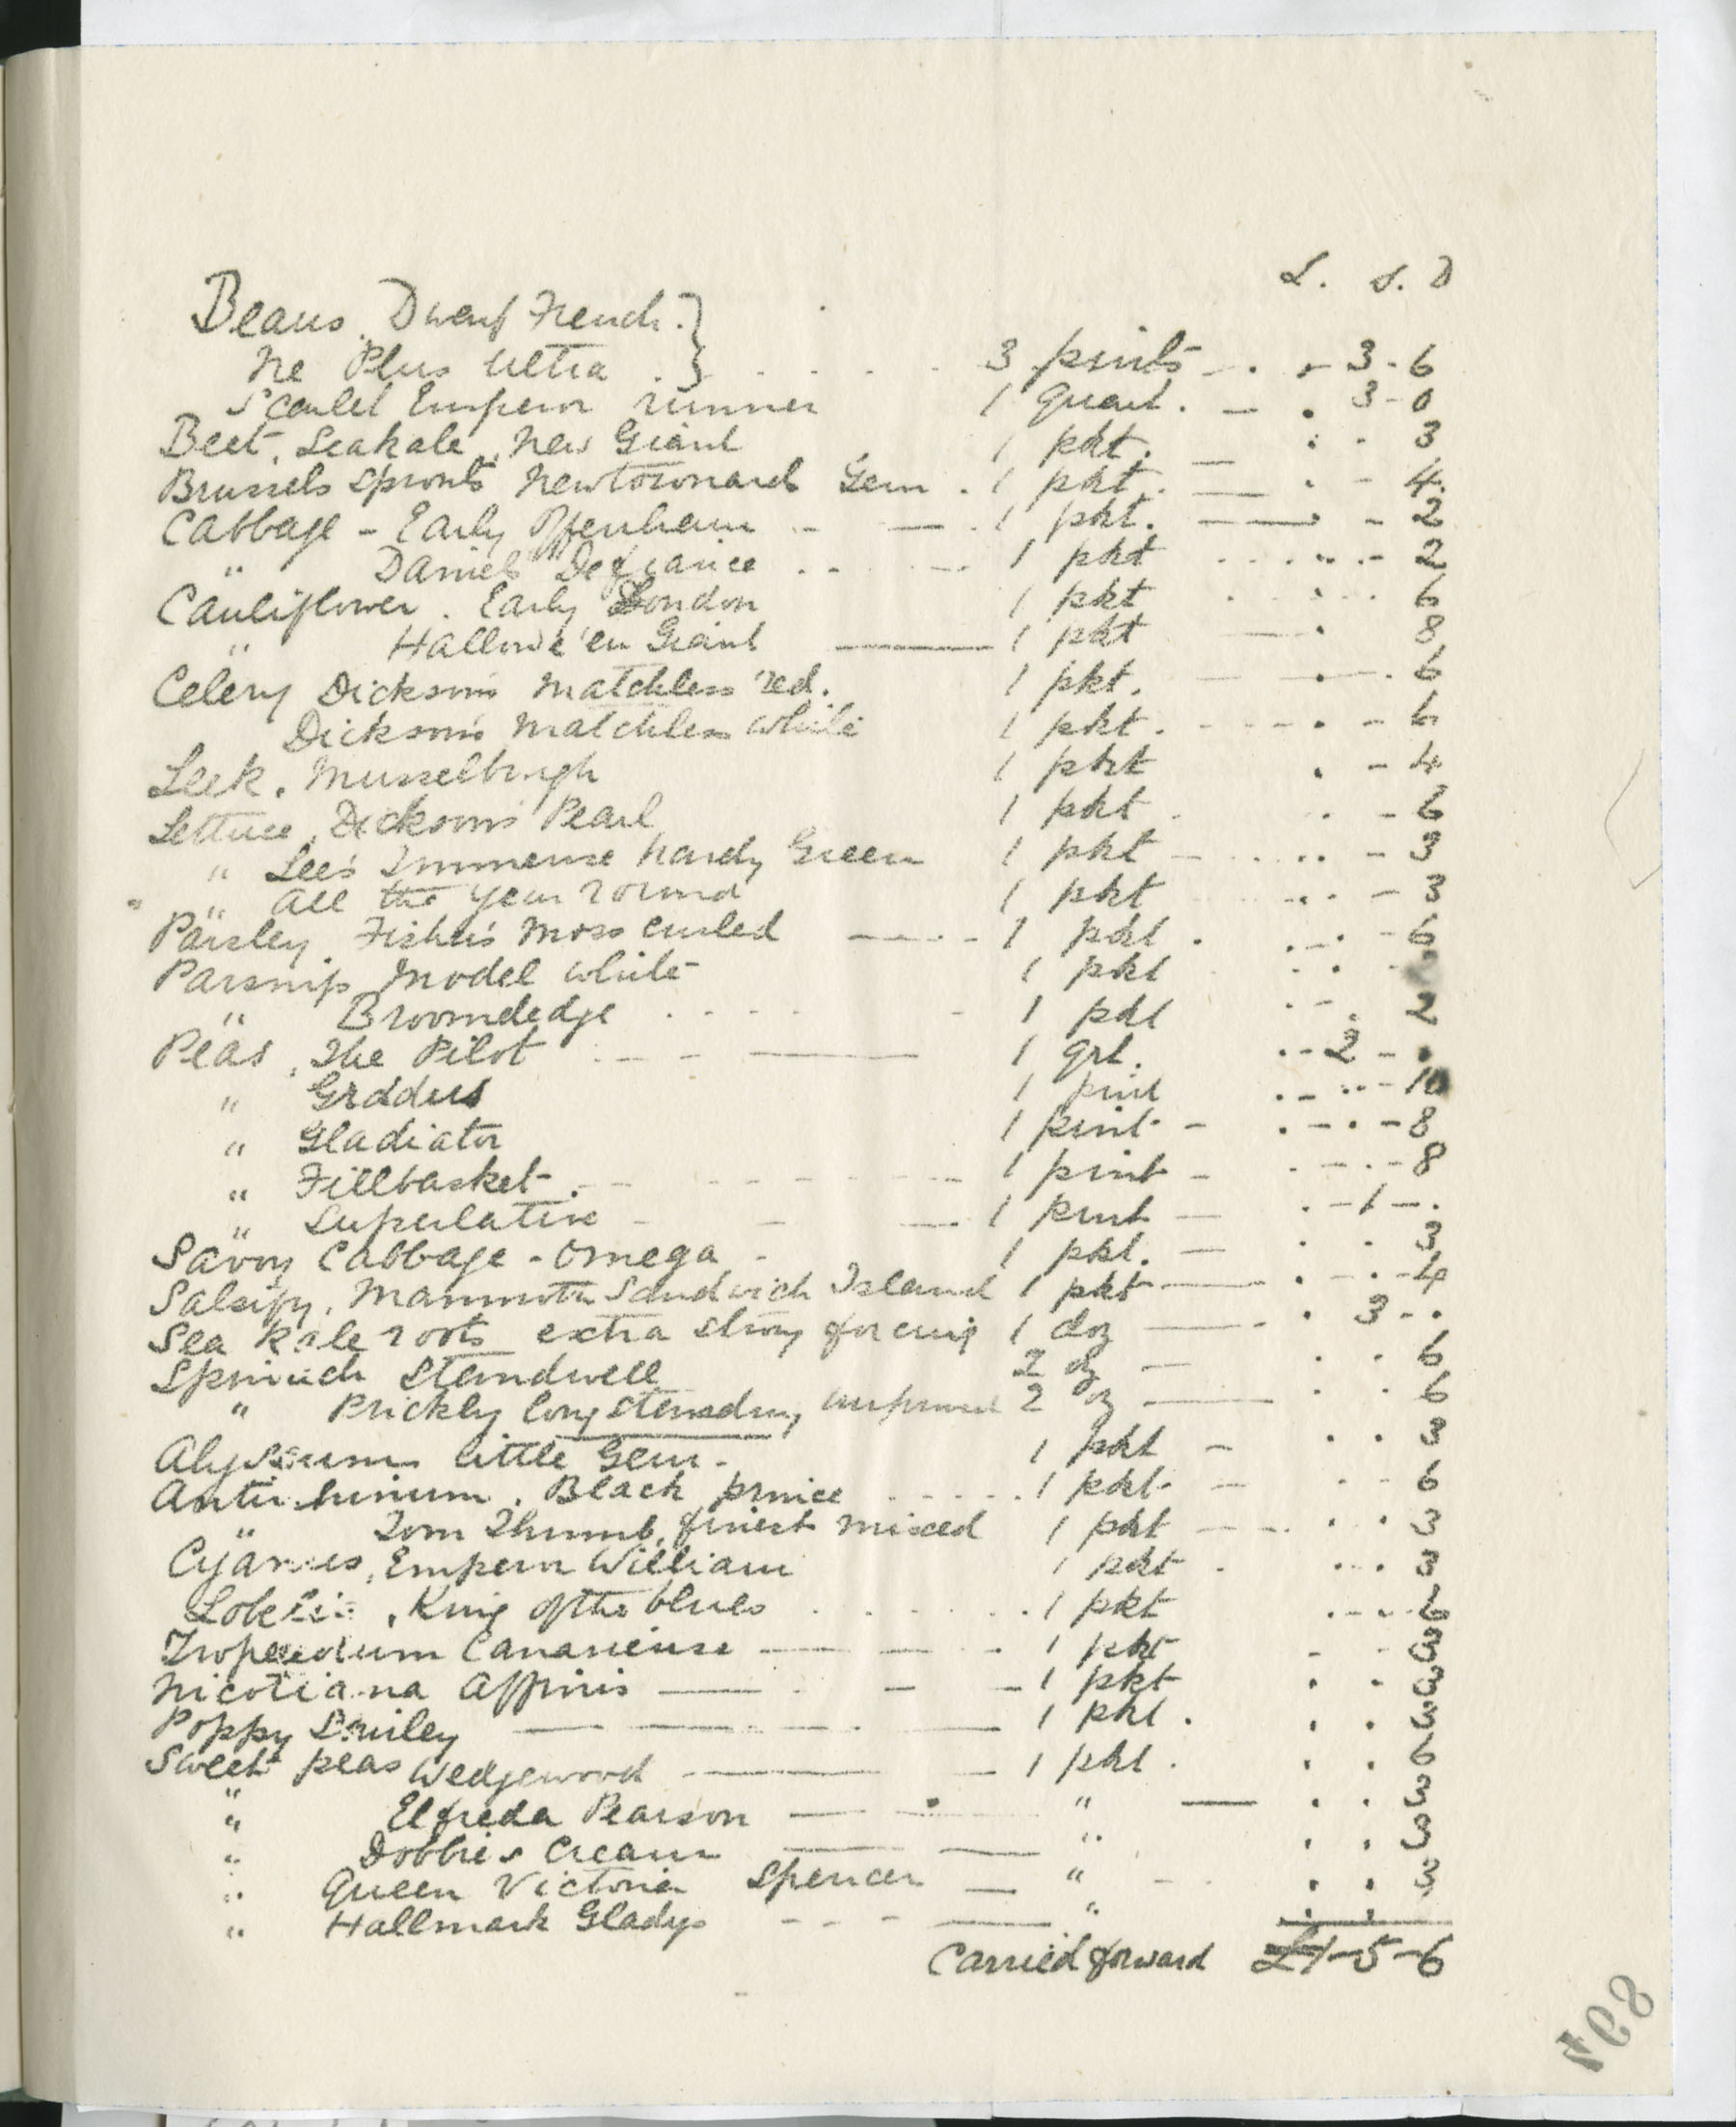 L. S. D
Beans. Dwarf French. }
Ne Plus Ultra . } 3 pints - . - 3 - 6
Scarlet Emperor runner 1 Quart . - . 3 - 0
Beet, Seakale, New Giant 1 pkt. - . - 3
Brussels Sprouts Newtownards Gem . 1 pkt. - . - 4
Cabbage - Early Offenham - - . 1 pkt. - . - 2
" Daniels Defiance . . 1 pkt . . . - 2
Cauliflower . Early London 1 pkt . . . 6
" Hallowe'en Giant - 1 pkt - . 8
Celery Dickson's Matchless red. 1 pkt. - . - . 6
Dickson's Matchless white 1 pkt . - . - 6
Leek. Musselburgh 1 pkt . - 4
Lettuce, Dickson's Pearl 1 pkt . . - 6
" Lee's Immense hardy Green 1 pkt - . . - 3
" All the year round 1 pkt . . - 3
Parsley Fisher's Moss curled - 1 pkt . . . - 6
Parsnip Model white 1 pkt . .
" Broomdedge . . . . 1 pkt . - . 2
Peas, The Pilot - 1 qrt. . - 2 - .
" Gradus 1 pint . - . . - 10
" Gladiator 1 pint - . - . - 8
" Fillbasket . - - 1 pint - . - . - 8
" Superlative - - - . 1 pint - . - 1 - .
Savoy Cabbage - Omega - 1 pkt. - . . 3
Salsify, Mammoth Sandwich Island 1 pkt - . - . - 4
Sea kale roots extra strong forcing 1 doz - . 3 - .
Spinach Standwell 2 oz - . . 6
" Prickly long standing improved 2 oz - . . 6
Alyssum little Gem - 1 pkt - . . 3
Antirrhinum, Black prince . . . 1 pkt - . . 6
" Tom Thumb, finest mixed 1 pkt - . . 3
Cyanus, Emperor William 1 pkt . . . . 3
Lobelia, King of the blues . . . 1 pkt . - . - 6
Tropaeolum Canariense - - - . 1 pkt - - 3
Nicotiana Affinis - . - - 1 pkt . . 3
Poppy Shirley - - - . - 1 pkt . . . 3
Sweet peas Wedgewood - - 1 pkt . . . 6
" Elfreda Pearson - . " - . . 3
" Dobbies Cream - - " . . 3
" Queen Victoria Spencer - " - . . 3
" Hallmark Gladys - - - - " . .
Carried forward £1-5-6
894